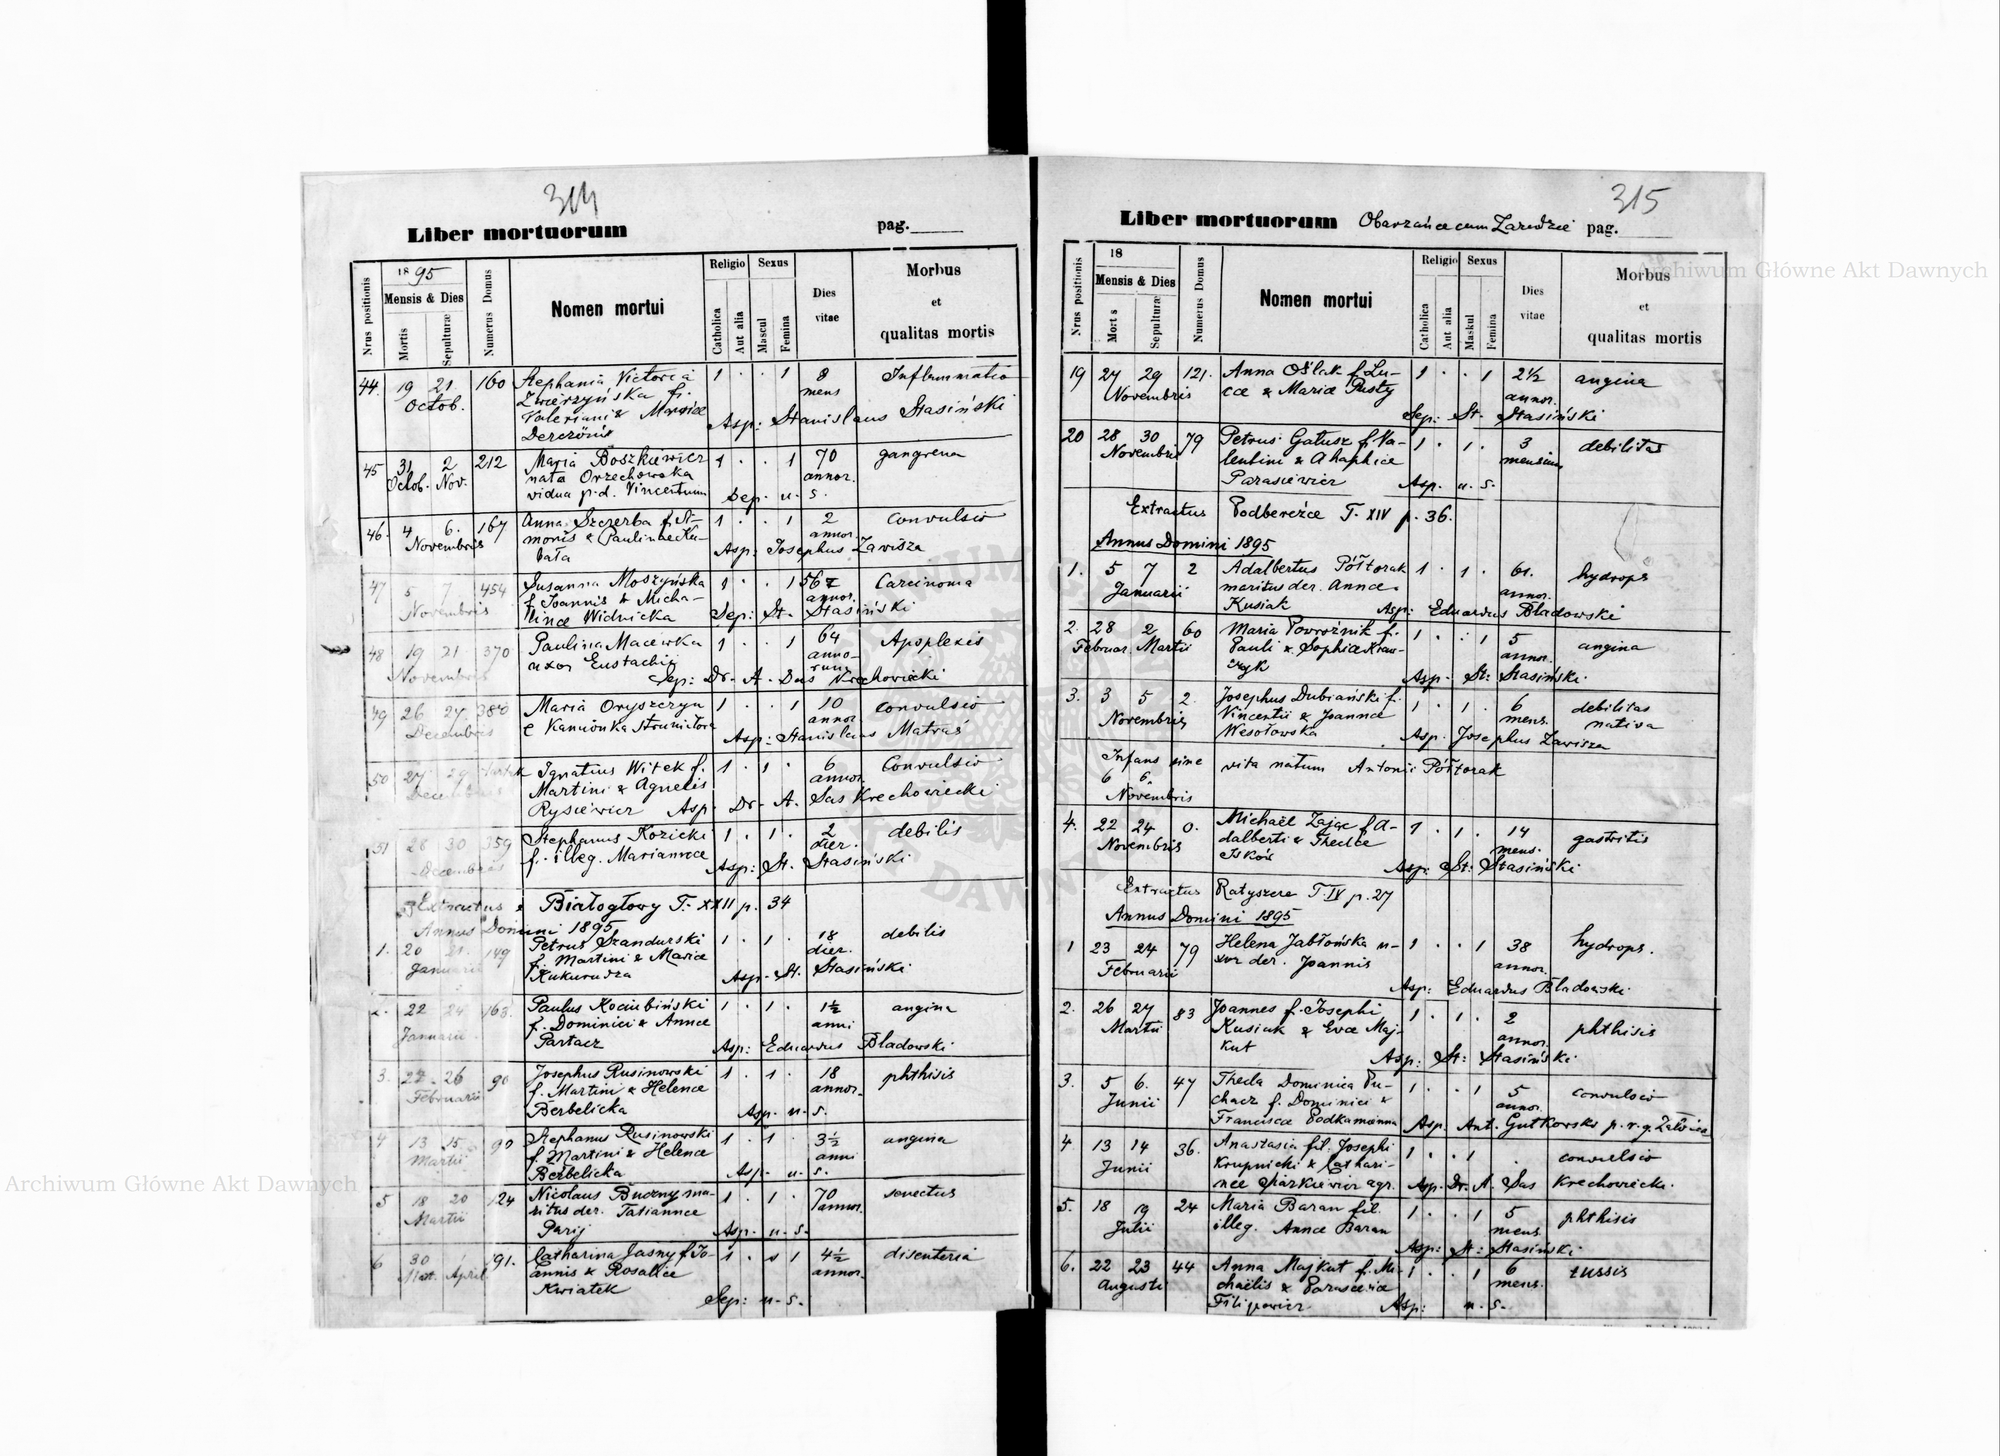 314
Liber mortuorum
pag.
Nrus positionis
1895
Mensis & Dies
Mortis
Sepulturæ
Numerus Domus
Nomen mortui
Religio
Catholica
Aut alia
Sexus
Mascul
Femina
Dies vitae
Morbus
et
qualitas mortis
44. 19 21 160 Stephania Victoria 1 . . 1 8 Inflammatio
Octob. Zwierzyńska f. mens
Valeriani & Mariæ Asp: Stanislaus Stasiński
45 31 2 212 Maria Boszkiewicz 1 . . 1 70 gangrena
Octob. Nov. nata Orzechowska annor.
vidua p. d. Vincentium Sep. u. s.
46. 4 6. 167 Anna Szczerba f. Si- 1 . . 1 2 Convulsio
Novembris monis & Paulinæ Ku- annor.
bata Asp: Josephus Zawisza
47 5 7 454 Susanna Moszyńska 1 . . 1 56 Carcinoma
Novembris f. Joannis & Micha- annor.
linæ Widnicka Sep: St. Stasiński
48 19 21 370 Paulina Macewka 1 . . 1 64 Apoplexis
Novembris uxor Eustachii anno-
rum
Sep: Dr. A. Sas Krechowiecki
49 26 27 380 Maria Oryszczyn 1 . . 1 10 convulsio
Decembris e Kamionka Strumiłowa annor
Asp: Stanislaus Matraś
50 27 29 Ignatius Witek f. 1 . 1 . 6 Convulsio
Decembris Martini & Agnetis annor.
Rysiewicz Asp Dr. A. Sas Krechowiecki
51 28 30 359 Stephanus Kozicki 1 . 1 . 2 debilis
Decembris f. illeg. Mariannæ dier.
Asp: St. Stasiński
Extractus Białogłowy T. XXII p. 34
Annus Domini 1895
1. 20 21 149 Petrus Szandurski 1 . 1 . 18 debilis
Januarii f. Martini & Mariæ dier.
Kukurudza Asp. St. Stasiński
2. 22 24 163. Paulus Kociubiński 1 . 1 . 1½ angina
Januarii f. Dominici & Annæ anni
Partacz Asp: Eduardus Bladowski
3. 24 26 90 Josephus Rusinowski 1 . 1 . 18 phthisis
Februarii f. Martini & Helenæ annor.
Berbelicka Asp. u. s.
4 13 15 90 Stephanus Rusinowski 1 . 1 . 3½ angina
Martii f. Martini & Helenæ anni
Berbelicka Asp. u. s.
5 18 20 124 Nicolaus Buczny ma- 1 . 1 . 70 senectus
Martii ritus der. Tatiannæ annor.
Parij Asp. u. s.
6 30 1 91. Catharina Jasny f. Jo- 1 . . 1 4½ disenteria
Mart. April annis & Rosaliæ annor.
Kwiatek
Sep: u. s.
315
Liber mortuorum Obarzańce cum Zarudzie pag.
Nrus positionis
18
Mensis & Dies
Mort s
Sepulturæ
Numerus Domus
Nomen mortui
Religio
Catholica
Aut alia
Sexus
Maskul
Femina
Dies vitae
Morbus
et
qualitas mortis
19 27 29 121. Anna Oślak f. Lu- 1 . . 1 2½ angina
Novembris cæ & Mariæ Pusty annor.
Sep: St. Stasiński
20 28 30 79 Petrus Gatusz f. Va- 1 . 1 . 3 debilitas
Novembris lentini & Ahaphiæ mensium
Parasiewicz Asp. u. s.
Extractus Podbereźce T. XIV p. 36.
Annus Domini 1895
1. 5 7 2 Adalbertus Półtorak 1 . 1 . 61. hydrops
Januarii maritus der. Annæ annor.
Kusiak Asp: Eduardus Bladowski
2. 28 2 60 Maria Powroźnik f. 1 . . 1 5 angina
Februar. Martii Pauli & Sophiæ Kraw- annor.
czyk Asp: St: Stasiński.
3. 3 5 2. Josephus Dubiański f. 1 . 1 . 6 debilitas
Novembris Vincentii & Joannæ mens. nativa
Wesołowska Asp. Josephus Zawisza
Infans sine vita natum Antonii Półtorak
6 6.
Novembris
4. 22 24 0. Michaël Zając f. A- 1 . 1 . 14 gastritis
Novembris dalberti & Theclæ mens.
Iskóz Asp: St: Stasiński
Extractus Ratyszcze T. IV p. 27
Annus Domini 1895
1 23 24 79 Helena Jabłońska u- 1 . . 1 38 hydrops.
Februarii xor der. Joannis annor.
Asp: Eduardus Bladowski.
2. 26 27 83 Joannes f. Josephi 1 . 1 . 2 phthisis
Martii Kusiak & Evæ Maj- annor.
kut Asp: St: Stasiński.
3. 5 6. 47 Thecla Dominica Pu- 1 . . 1 5 convulsio
Junii chacz f. Dominici & annor.
Franciscæ Podkamienna Asp. Ant. Gutkowski p. r. g. Załośce
4 13 14 36. Anastasia fil. Josephi 1 . . 1 . convulsio
Junii Krupnicki & Cathari-
næ agr. Asp. Dr. A. Sas Krechowiecki.
5. 18 19 24 Maria Baran fil. 1 . . 1 5 phthisis
Julii illeg. Annæ Baran mens.
Asp: St: Stasiński.
6. 22 23 44 Anna Majkut f. Mi- 1 . . 1 6 tussis
Augusti chaëlis & Parasceviæ mens.
Filipowicz Asp: u. s.
Archiwum Główne Akt Dawnych
Archiwum Główne Akt Dawnych